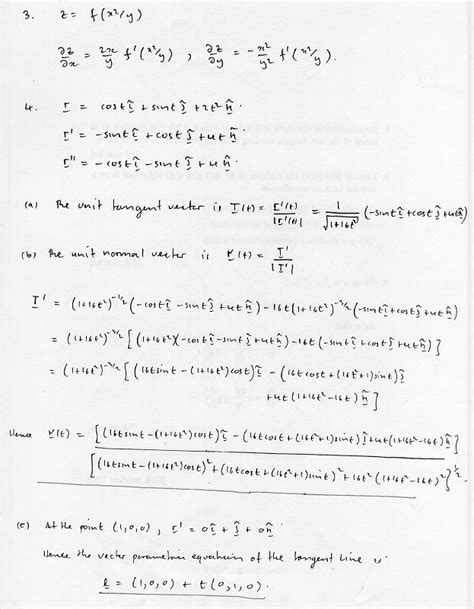 3. z = f(x²/y)
∂z/∂x = 2x/y f'(x²/y) , ∂z/∂y = -x²/y² f'(x²/y).
4. r = cost i + sint j + 2t² k
r' = -sint i + cost j + 4t k
r'' = -cost i - sint j + 4 k
(a) The unit tangent vector is T(t) = r'(t)/|r'(t)| = 1/√(1+16t²) (-sint i + cost j + 4t k)
(b) The unit normal vector is N(t) = T'/|T'|
T' = (1+16t²)^(-1/2) (-cost i - sint j + 4t k) - 16t(1+16t²)^(-3/2) (-sint i + cost j + 4t k)
= (1+16t²)^(-3/2) [(1+16t²)(-cost i - sint j + 4t k) - 16t(-sint i + cost j + 4t k)]
= (1+16t²)^(-3/2) [(16t sint - (1+16t²)cost) i - (16t cost + (16t²+1)sint) j
+ 4t(1+16t²-16t) k]
Hence N(t) = [(16t sint - (1+16t²)cost) i - (16t cost + (16t²+1)sint) j + 4t(1+16t²-16t) k]
[(16t sint - (1+16t²)cost)² + (16t cost + (16t²+1)sint)² + 16t²(1+16t²-16t)²]^(1/2)
(c) At the point (1,0,0), r' = 0i + j + 0k.
Hence the vector parametric equation of the tangent line is
R = (1,0,0) + t(0,1,0).